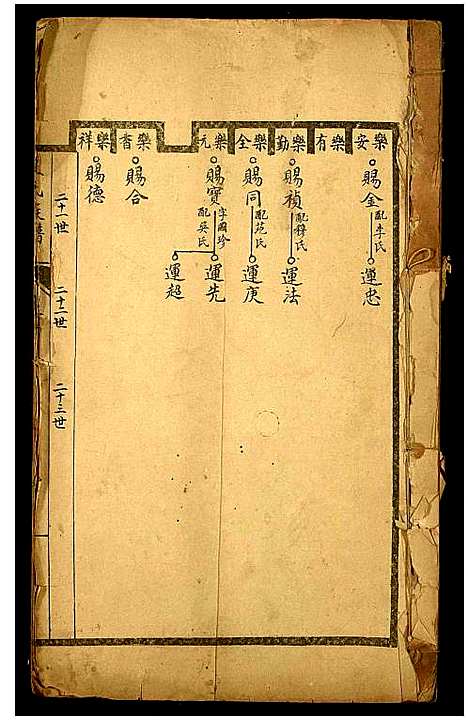 樂安
樂有
樂勤
樂全
樂元
樂書
樂祥
賜金
配李氏
運忠
賜禎
配釋氏
運法
賜同
配范氏
運庚
賜寶
字國珍
配吳氏
運先
運超
賜合
賜德
二十一世
二十二世
二十三世